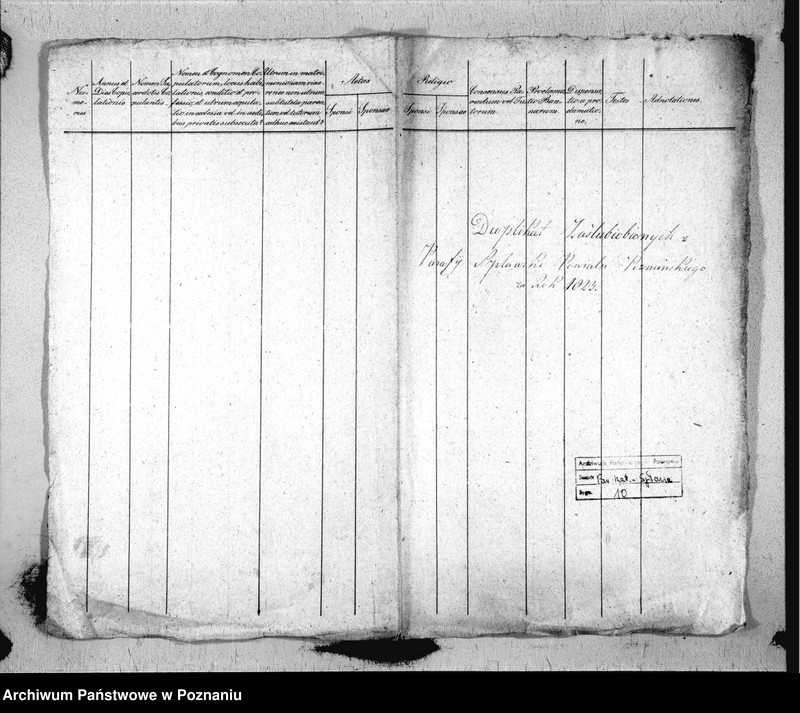 Nu-
me-
rus.
Annus et
Dies Copu-
lationis
Nomen Sa-
cerdotis Co-
pulantis.
Nomen et Cognomen Co-
pulatorum, locus habi-
tationis, conditio et pro-
fessio, et utrum copula-
tio in ecclesia vel in aedi-
bus privatis subsecuta?
Utrum in matri-
monio iam vixe-
rint nec non utrum
sub tutela paren-
tum vel tutorum
adhuc existant?
Aetas
Sponsi
Sponsae
Religio
Sponsi
Sponsae
Consensus Pa-
rentum vel Tu-
torum.
Proclama-
tio Ban-
norum.
Dispensa-
tio a pro-
clamatio-
ne.
Testes
Adnotationes.
Duplikat Zaślubiobionych z
Parafij Spławski Powiatu Poznańskiego
za Rok 1823.
Archiwum Państwowe w Poznaniu
Zespół Par. kat. - Spławie
Sygn. 10
Archiwum Państwowe w Poznaniu